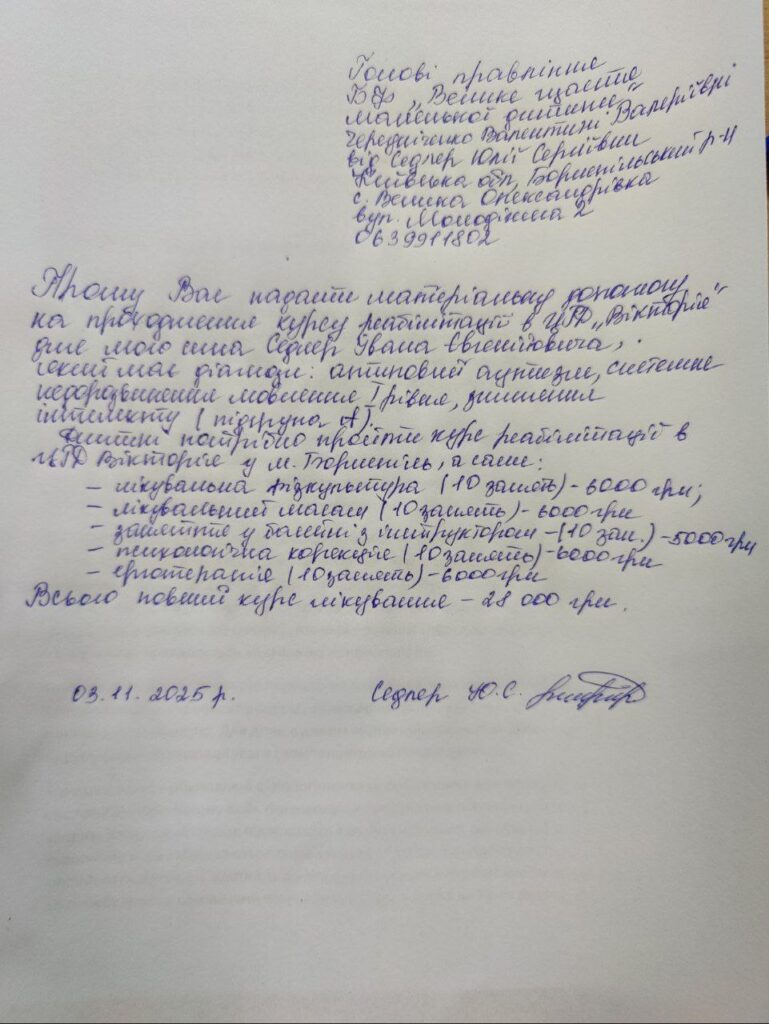 Голові правління
БФ „Велике щастя
маленької дитини"
Чередніченко Валентині Валеріївні
від Седлер Юлії Сергіївни
Київська обл, Бориспільський р-н
с. Велика Олександрівка
вул. Молодіжна 2
0639911802
Прошу Вас надати матеріальну допомогу
на проходження курсу реабілітації в ЦРД „Вікторія"
для мого сина Седлер Івана Євгенійовича,
який має діагноз: атиповий аутизм, системне
недорозвинення мовлення І рівня, зниження
інтелекту (підгрупа А).
Дитині потрібно пройти курс реабілітації в
ЦРД Вікторія у м. Бориспіль, а саме:
- лікувальна фізкультура (10 занять) - 6000 грн;
- лікувальний масаж (10 занять) - 6000 грн
- заняття у басейні з інструктором - (10 зан.) - 5000 грн
- психологічна корекція (10 занять) - 6000 грн
- ерготерапія (10 занять) - 6000 грн
Всього повний курс лікування - 28 000 грн.
03.11.2025 р. Седлер Ю.С.